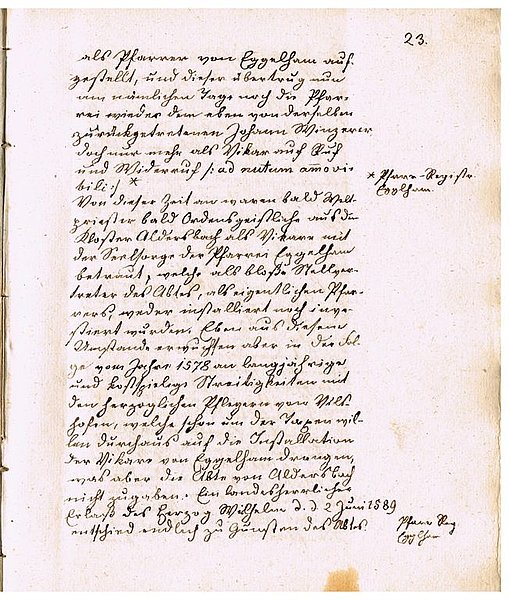 23.
als Pfarrer von Eggelham auf¬
gestellt, und dieser übertrug nun
am nämlichen Tage noch die Pfar¬
rei wieder dem eben von derselben
zurückgetretenen Johann Winzerer
doch nur mehr als Vikar auf Ruf
und Widerruf /: ad nutum amovi¬
bili :/ *
* Pfarr-Registr.
Egglham.
Von dieser Zeit an waren bald Welt¬
priester bald Ordensgeistliche aus dem
Kloster Aldersbach als Vikare mit
der Seelsorge der Pfarrei Eggelham
betraut, welche als bloße Stellver¬
treter des Abtes, als eigentlichen Pfar¬
rers, weder installiert noch inve¬
stiert wurden. Eben aus diesem
Umstande erwuchsen aber in der Fol¬
ge vom Jahre 1578 an langjährige
und kostspielige Streitigkeiten mit
den herzoglichen Pflegern von Vils
hofen, welche schon um der Taxen wil¬
len durchaus auf die Installation
der Vikare von Eggelham drangen,
was aber die Äbte von Aldersbach
nicht zugaben. Ein landesherrlicher
Erlaß des Herzog Wilhelm d. d. 2 Juni 1589
entschied endlich zu Gunsten des Abtes.
Pfarr Reg
Egglham